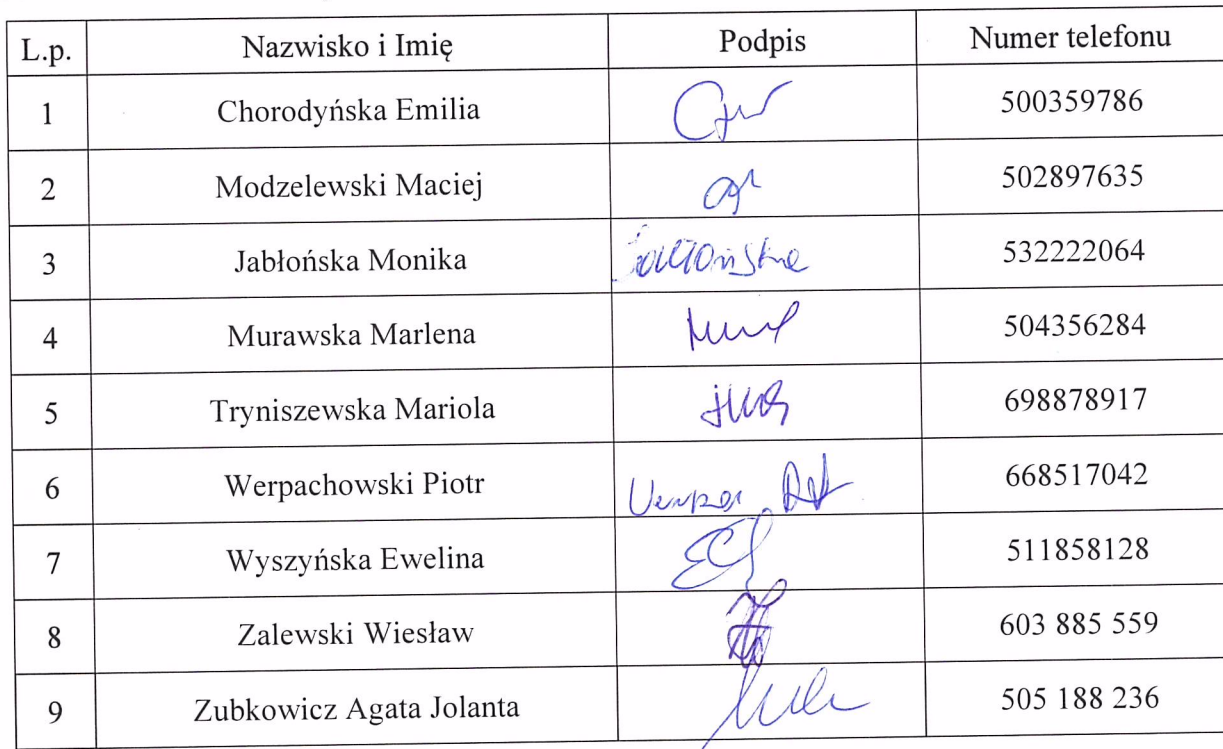 L.p. Nazwisko i Imię Podpis Numer telefonu
1 Chorodyńska Emilia 500359786
2 Modzelewski Maciej 502897635
3 Jabłońska Monika 532222064
4 Murawska Marlena 504356284
5 Tryniszewska Mariola 698878917
6 Werpachowski Piotr 668517042
7 Wyszyńska Ewelina 511858128
8 Zalewski Wiesław 603 885 559
9 Zubkowicz Agata Jolanta 505 188 236